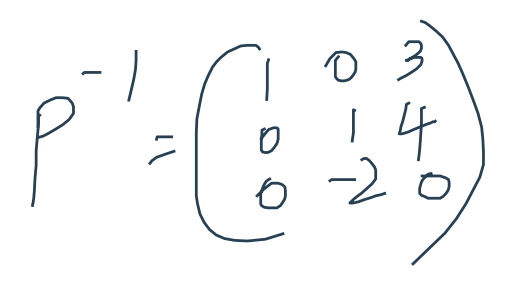 P⁻¹ = (1 0 3
0 1 4
0 -2 0)